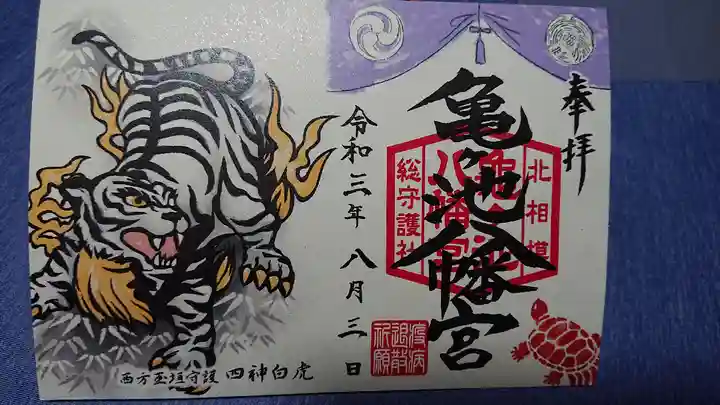 奉拝
亀ヶ池八幡宮
北相模
亀ヶ池
八幡宮
総守護社
疫病
退散
祈願
令和三年 八月三日
西方玉垣守護 四神白虎